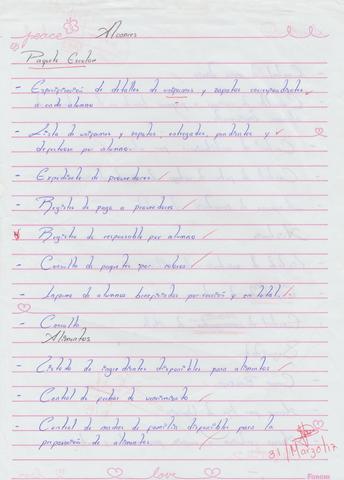 peace
Alcances
Paquete Escolar
- Especificación de detalles de uniformes y zapatos correspondientes
a cada alumno
- Lista de uniformes y zapatos, entregados, pendientes y
defectuoso por alumno.
- Expediente de proveedores
- Registro de pago a proveedores
- Registro de responsable por alumno
- Consulta de paquetes por
- Informe de alumnos beneficiados por sección y en total.
- Consulta
Alimentos
- Listado de ingredientes disponibles para alimentos
- Control de fechas de vencimiento
- Control de madres de familia disponibles para la
preparación de alimentos
31/Marzo/17
love